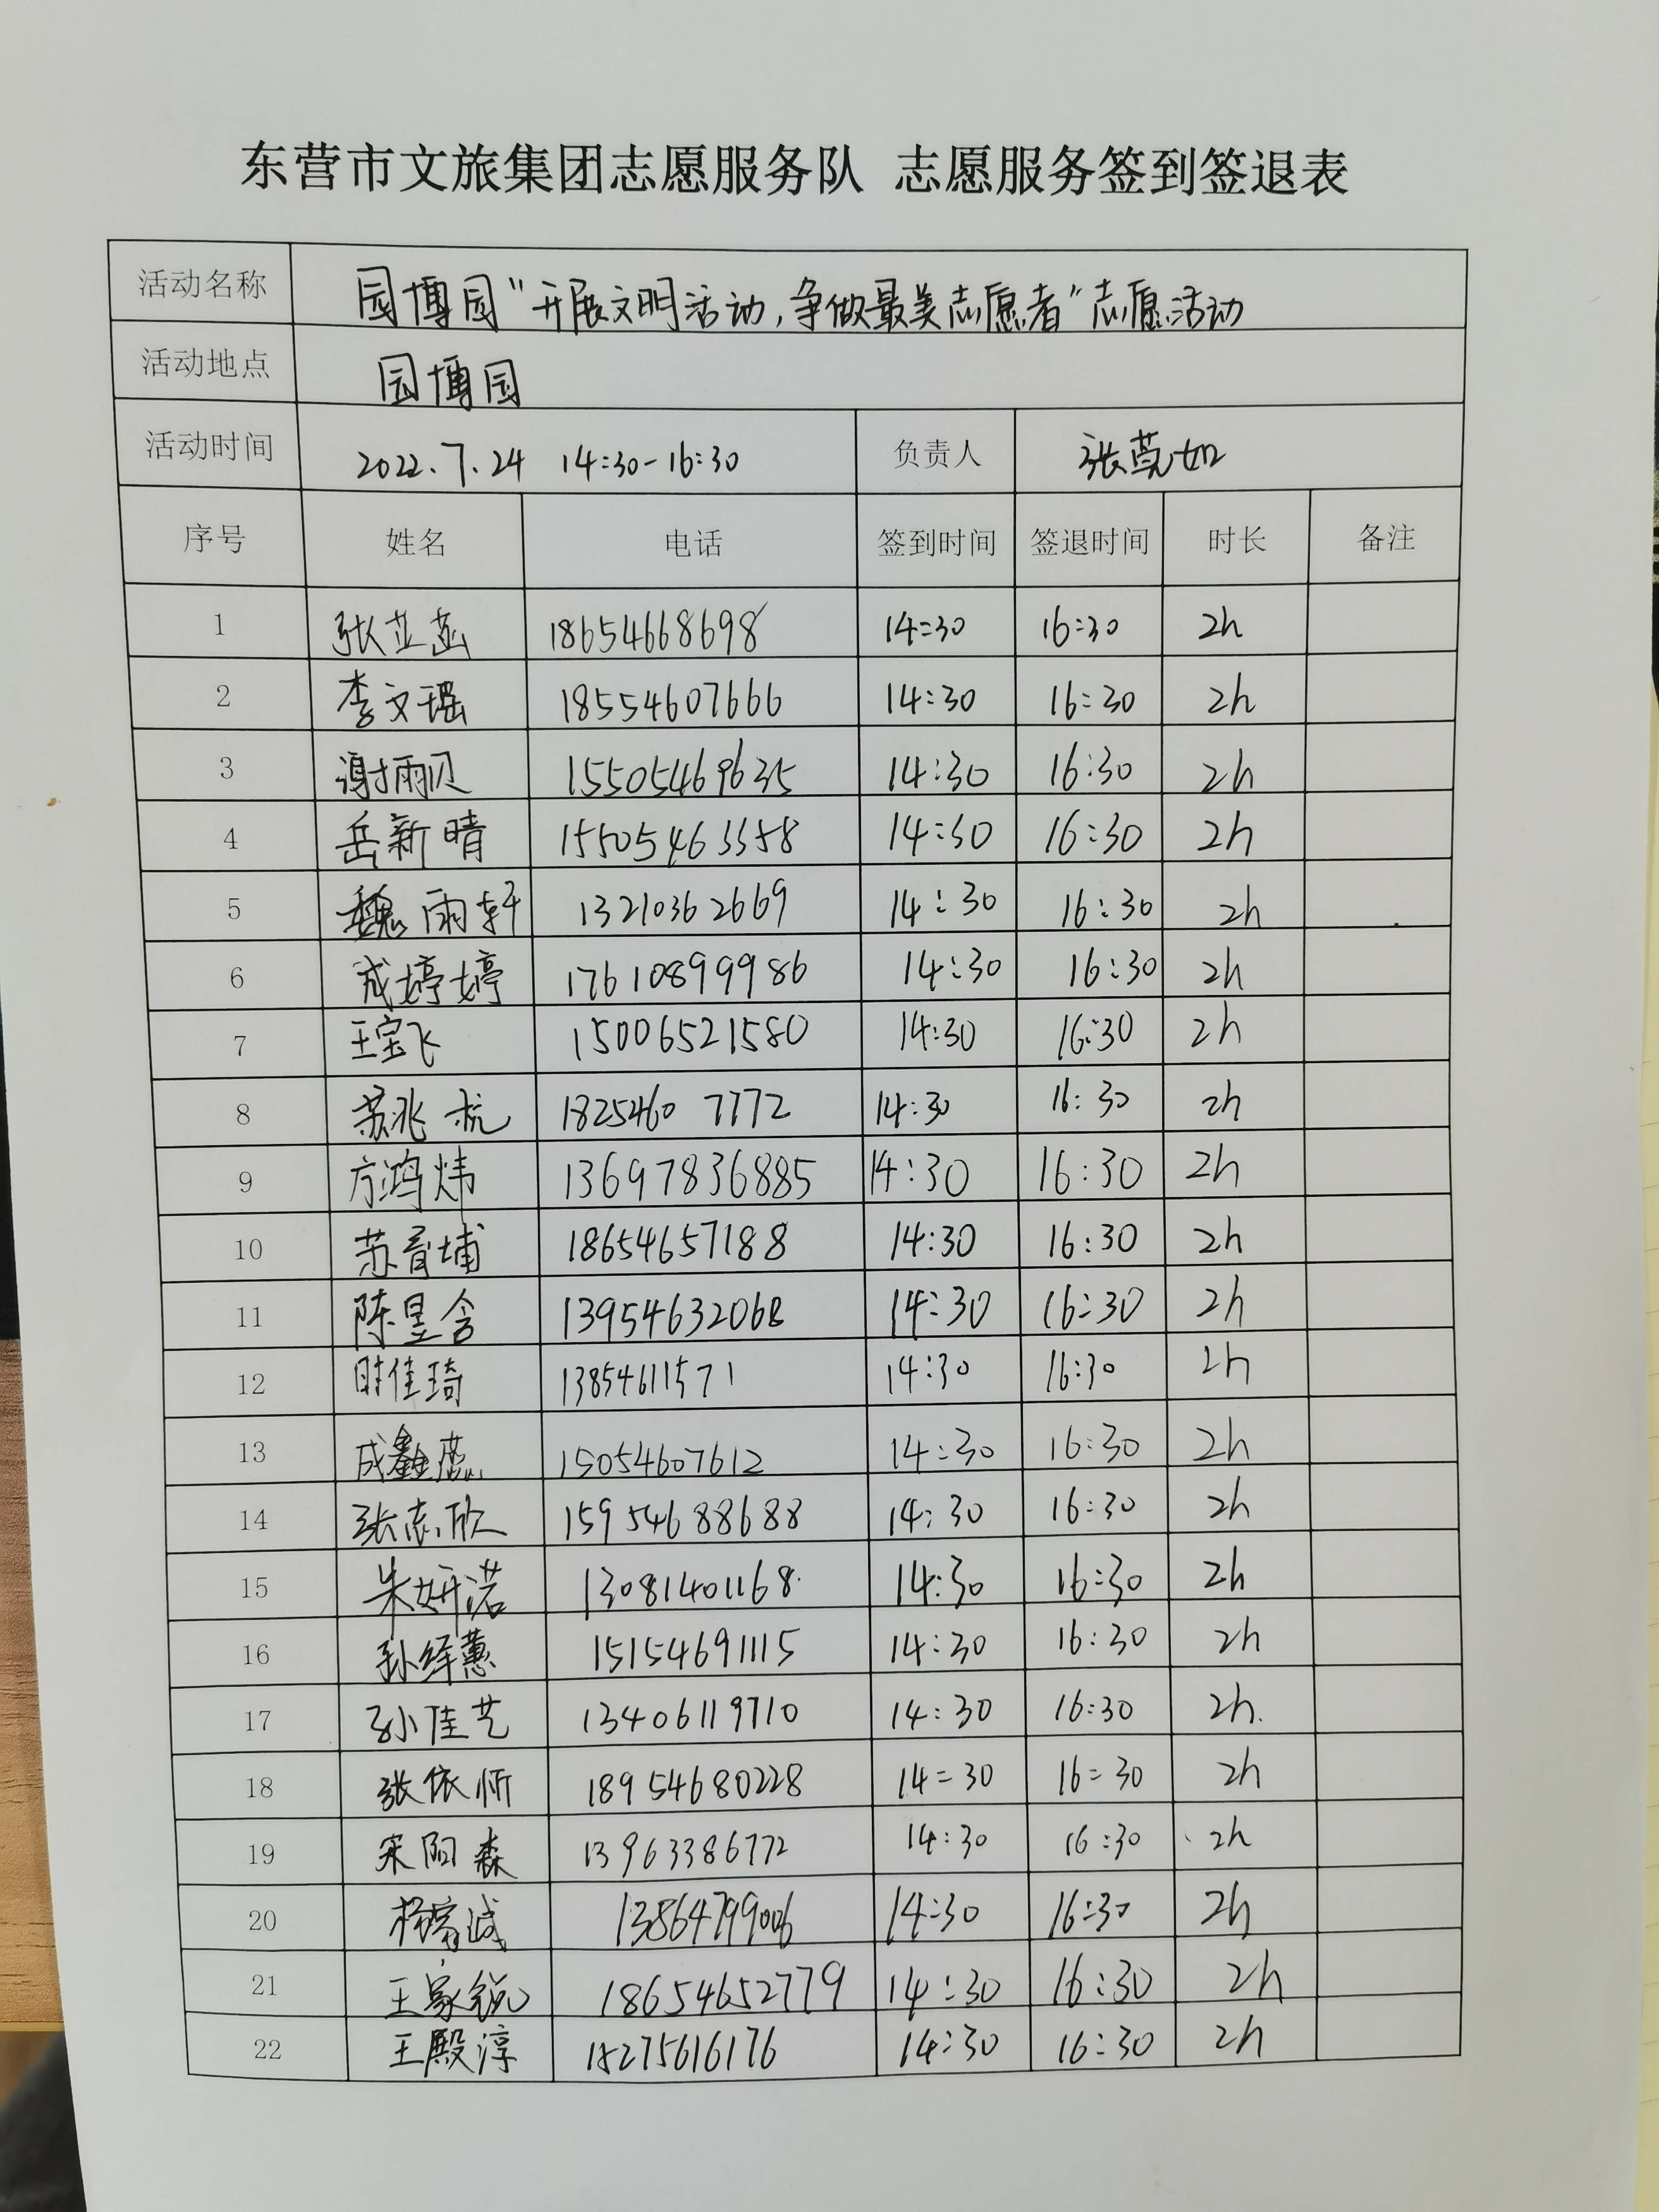 东营市文旅集团志愿服务队 志愿服务签到签退表
活动名称 园博园"开展文明活动,争做最美志愿者"志愿活动
活动地点 园博园
活动时间 2022.7.24 14:30-16:30 负责人 张莞如
序号 姓名 电话 签到时间 签退时间 时长 备注
1 张芷菡 18654668698 14:30 16:30 2h
2 李文瑶 18554607666 14:30 16:30 2h
3 谢雨贝 15505469635 14:30 16:30 2h
4 岳新晴 15505463558 14:30 16:30 2h
5 魏雨轩 13210362669 14:30 16:30 2h
6 成婷婷 17610899986 14:30 16:30 2h
7 王宝飞 15006521580 14:30 16:30 2h
8 苏兆杭 18254607772 14:30 16:30 2h
9 方鸿炜 13697836885 14:30 16:30 2h
10 苏育埔 18654657188 14:30 16:30 2h
11 陈昱含 13954632068 14:30 16:30 2h
12 时佳琦 13854611571 14:30 16:30 2h
13 成鑫蕊 15054607612 14:30 16:30 2h
14 张志欣 15954688688 14:30 16:30 2h
15 朱妍诺 13081401168 14:30 16:30 2h
16 孙绎蕙 15154691115 14:30 16:30 2h
17 孙佳艺 13406119710 14:30 16:30 2h
18 张依忻 18954680228 14:30 16:30 2h
19 宋阳森 13963386772 14:30 16:30 2h
20 14:30 16:30 2h
21 王家锐 18654652779 14:30 16:30 2h
22 王殿淳 14:30 16:30 2h